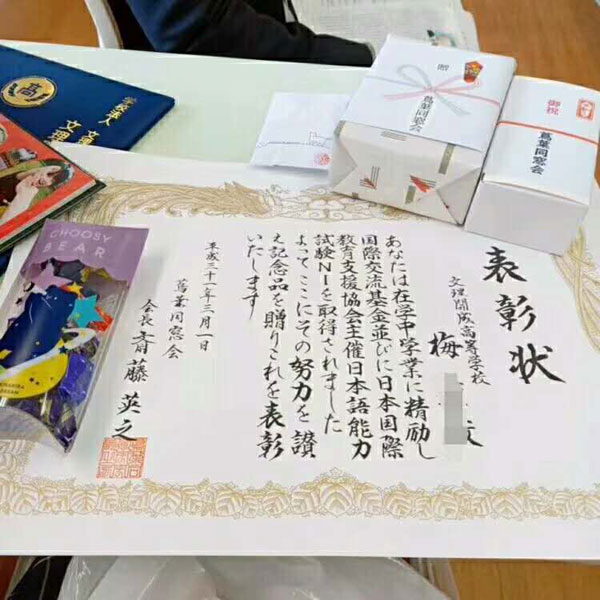 表彰状
文理開成高等学校
梅
あなたは在学中学業に精励し
国際交流基金並びに日本国際
教育支援協会主催日本語能力
試験N1を取得されました
よってここにその努力を讃
え記念品を贈りこれを表彰
いたします
平成三十一年三月一日
菖葉同窓会
会長 斉藤英之
贈
菖葉同窓会
御祝
菖葉同窓会
学校法人 文理
文理
高
CHOOSY
BEAR